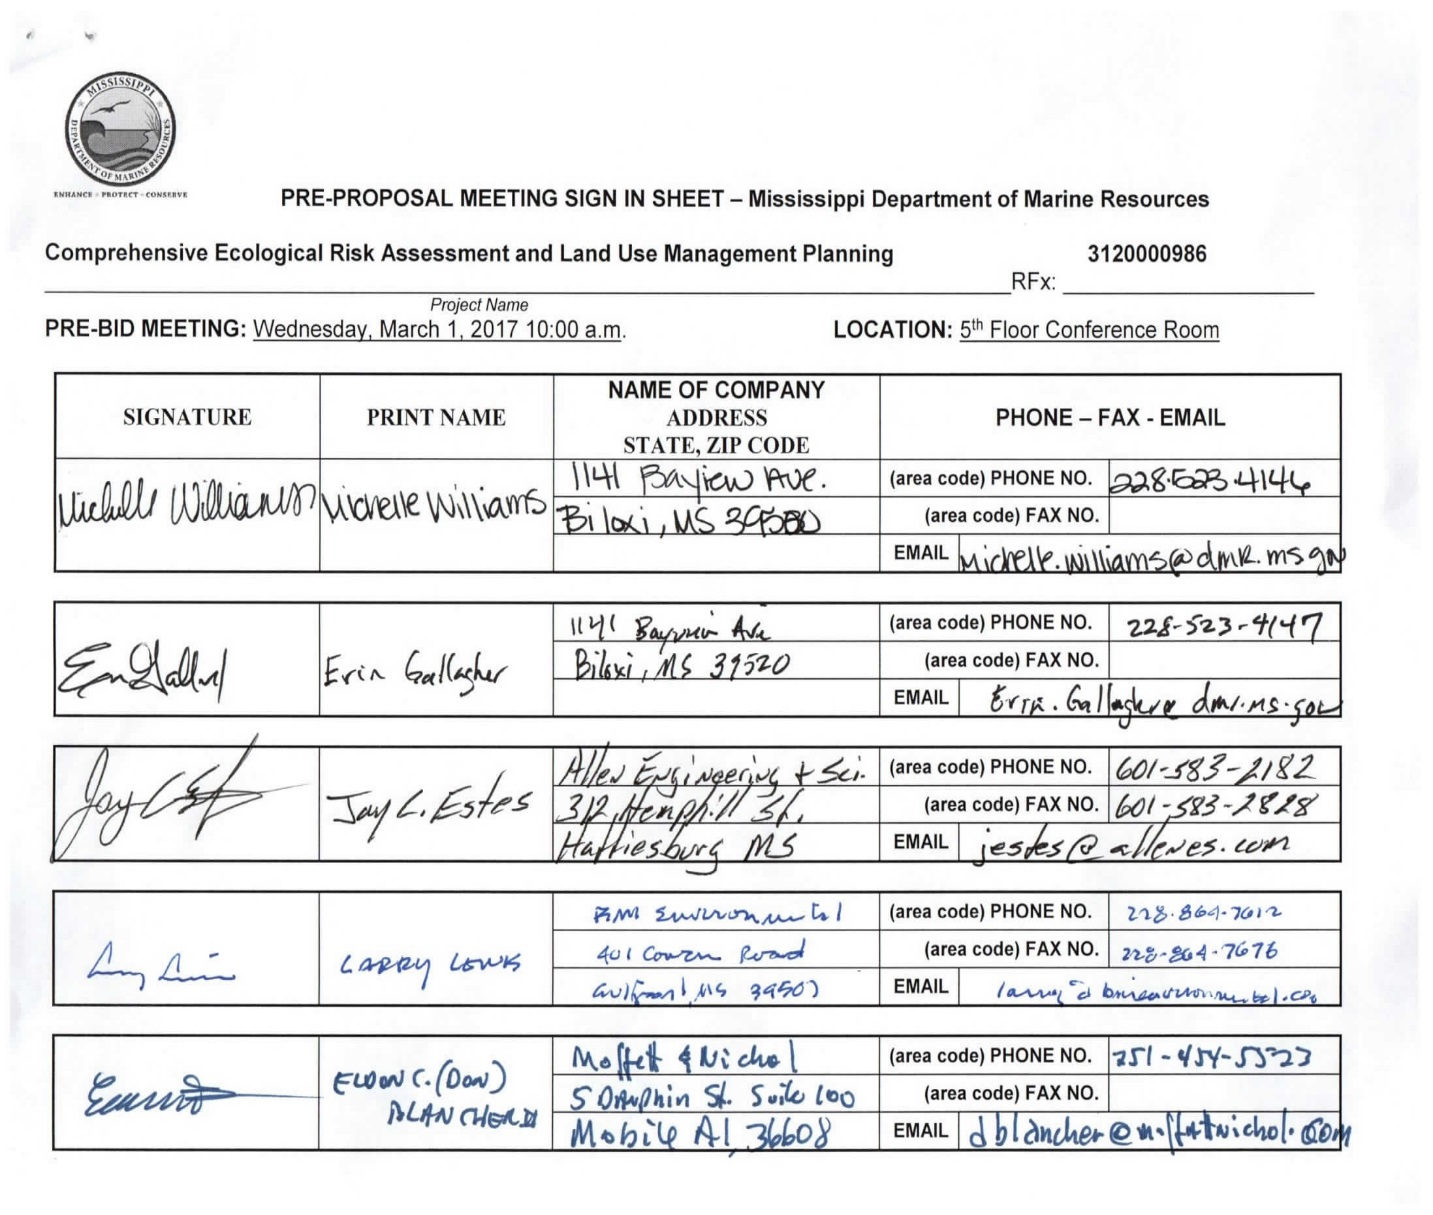 MISSISSIPPI
DEPARTMENT OF MARINE RESOURCES
ENHANCE - PROTECT - CONSERVE
PRE-PROPOSAL MEETING SIGN IN SHEET – Mississippi Department of Marine Resources
Comprehensive Ecological Risk Assessment and Land Use Management Planning 3120000986
RFx:
Project Name
PRE-BID MEETING: Wednesday, March 1, 2017 10:00 a.m. LOCATION: 5th Floor Conference Room
SIGNATURE PRINT NAME NAME OF COMPANY ADDRESS STATE, ZIP CODE PHONE – FAX - EMAIL
Michelle Williams Michelle Williams 1141 Bayview Ave. (area code) PHONE NO. 228.523.4146
Biloxi, MS (area code) FAX NO.
EMAIL Michelle.williams@dmr.ms.gov
Erin Gallagher 1141 Bayview Ave (area code) PHONE NO. 228-523-4147
Biloxi, MS 39520 (area code) FAX NO.
EMAIL Erin.Gallagher@dmr.ms.gov
Jay L. Estes Allen Engineering + Sci. (area code) PHONE NO. 601-583-2182
312 Hemphill St. (area code) FAX NO. 601-583-2828
Hattiesburg MS EMAIL jestes@allenes.com
LARRY LEWIS Environmental (area code) PHONE NO. 228-864-7612
401 Cowan Road (area code) FAX NO. 228-864-7676
Gulfport, MS 39507 EMAIL
ELDON C. (DON) BLANCHER II Moffatt & Nichol (area code) PHONE NO. 251-454-5523
5 Dauphin St. Suite 100 (area code) FAX NO.
Mobile Al, 36608 EMAIL dblancher@moffattnichol.com